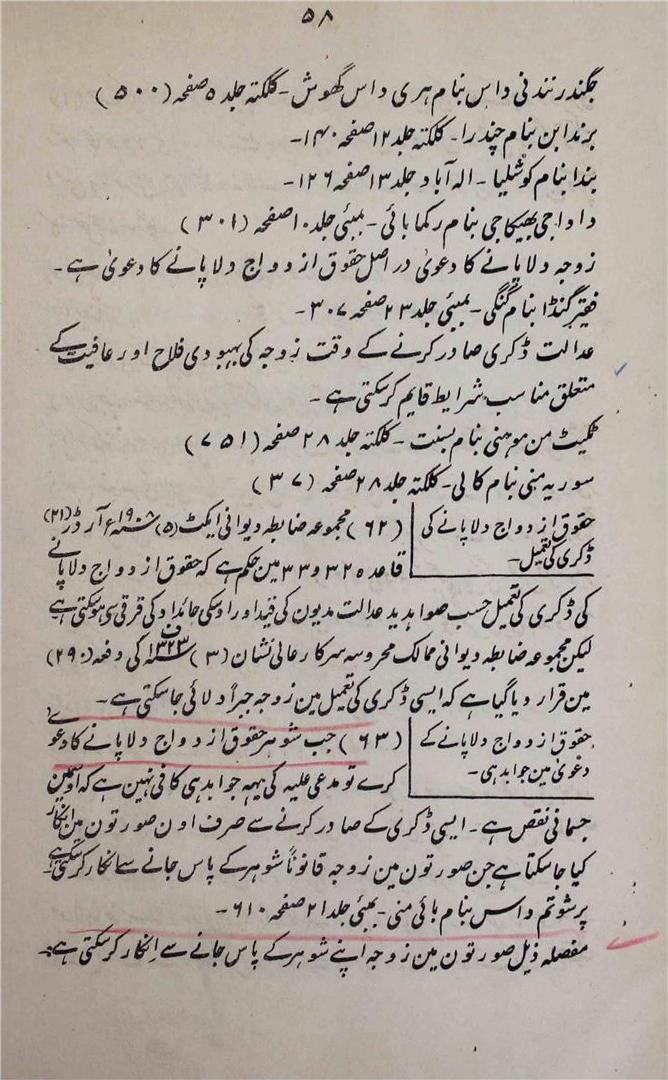 ۵۸
جگندر نندنی داس بنام ہری داس گھوش - کلکتہ جلد ۵ صفحہ (۵۰۰)
برندابن بنام چندرا - کلکتہ جلد ۱۲ صفحہ ۱۴۰ -
بندا بنام کوشلیا - الہ آباد جلد ۱۳ صفحہ ۱۲۶ -
داداجی بھیکاجی بنام رکمابائی - بمبئی جلد ۱۰ صفحہ (۳۰۱)
زوجہ دلاپانے کا دعویٰ دراصل حقوق ازدواج دلاپانے کا دعویٰ ہے -
فقیر گنڈا بنام گنگی - بمبئی جلد ۲۳ صفحہ ۳۰۷ -
عدالت ڈکری صادر کرنے کے وقت زوجہ کی بہبودی فلاح اور عافیت کے
متعلق مناسب شرایط قایم کرسکتی ہے -
ٹکیٹ من موہنی بنام بسنت - کلکتہ جلد ۲۸ صفحہ (۷۵۱)
سوریہ منی بنام کالی - کلکتہ جلد ۲۸ صفحہ (۳۷)
حقوق ازدواج دلاپانے کی
ڈکری کی تعمیل -
(۶۲) مجموعہ ضابطہ دیوانی ایکٹ (۵) ۱۹۰۸ء آرڈر (۲۱)
قاعدہ ۳۲ و ۳۳ مین حکم ہے کہ حقوق ازدواج دلاپانے
کی ڈکری کی تعمیل حسب صوابدید عدالت مدیون کی قید اور اوسکی جائداد کی قرقی سے ہوسکتی ہے
لیکن مجموعہ ضابطہ دیوانی ممالک محروسہ سرکار عالی نشان (۳) ۱۳۲۳ف کی دفعہ (۲۹۰)
مین قرار دیا گیا ہے کہ ایسی ڈکری کی تعمیل مین زوجہ جبراً دلائی جاسکتی ہے -
حقوق ازدواج دلاپانے کے
دعویٰ مین جوابدہی -
(۶۳) جب شوہر حقوق ازدواج دلاپانے کا دعوے
کرے تو مدعی علیہ کی یہہ جوابدہی کافی نہین ہے کہ اوسمین
جسمانی نقص ہے - ایسی ڈکری کے صادر کرنے سے صرف اون صورتون مین انکار
کیا جاسکتا ہے جن صورتون مین زوجہ قانوناً شوہر کے پاس جانے سے انکار کرسکتی ہے -
پرشوتم داس بنام بائی منی - بمبئی جلد ۲۱ صفحہ ۶۱۰ -
مفصلہ ذیل صورتون مین زوجہ اپنے شوہر کے پاس جانے سے انکار کرسکتی ہے :-